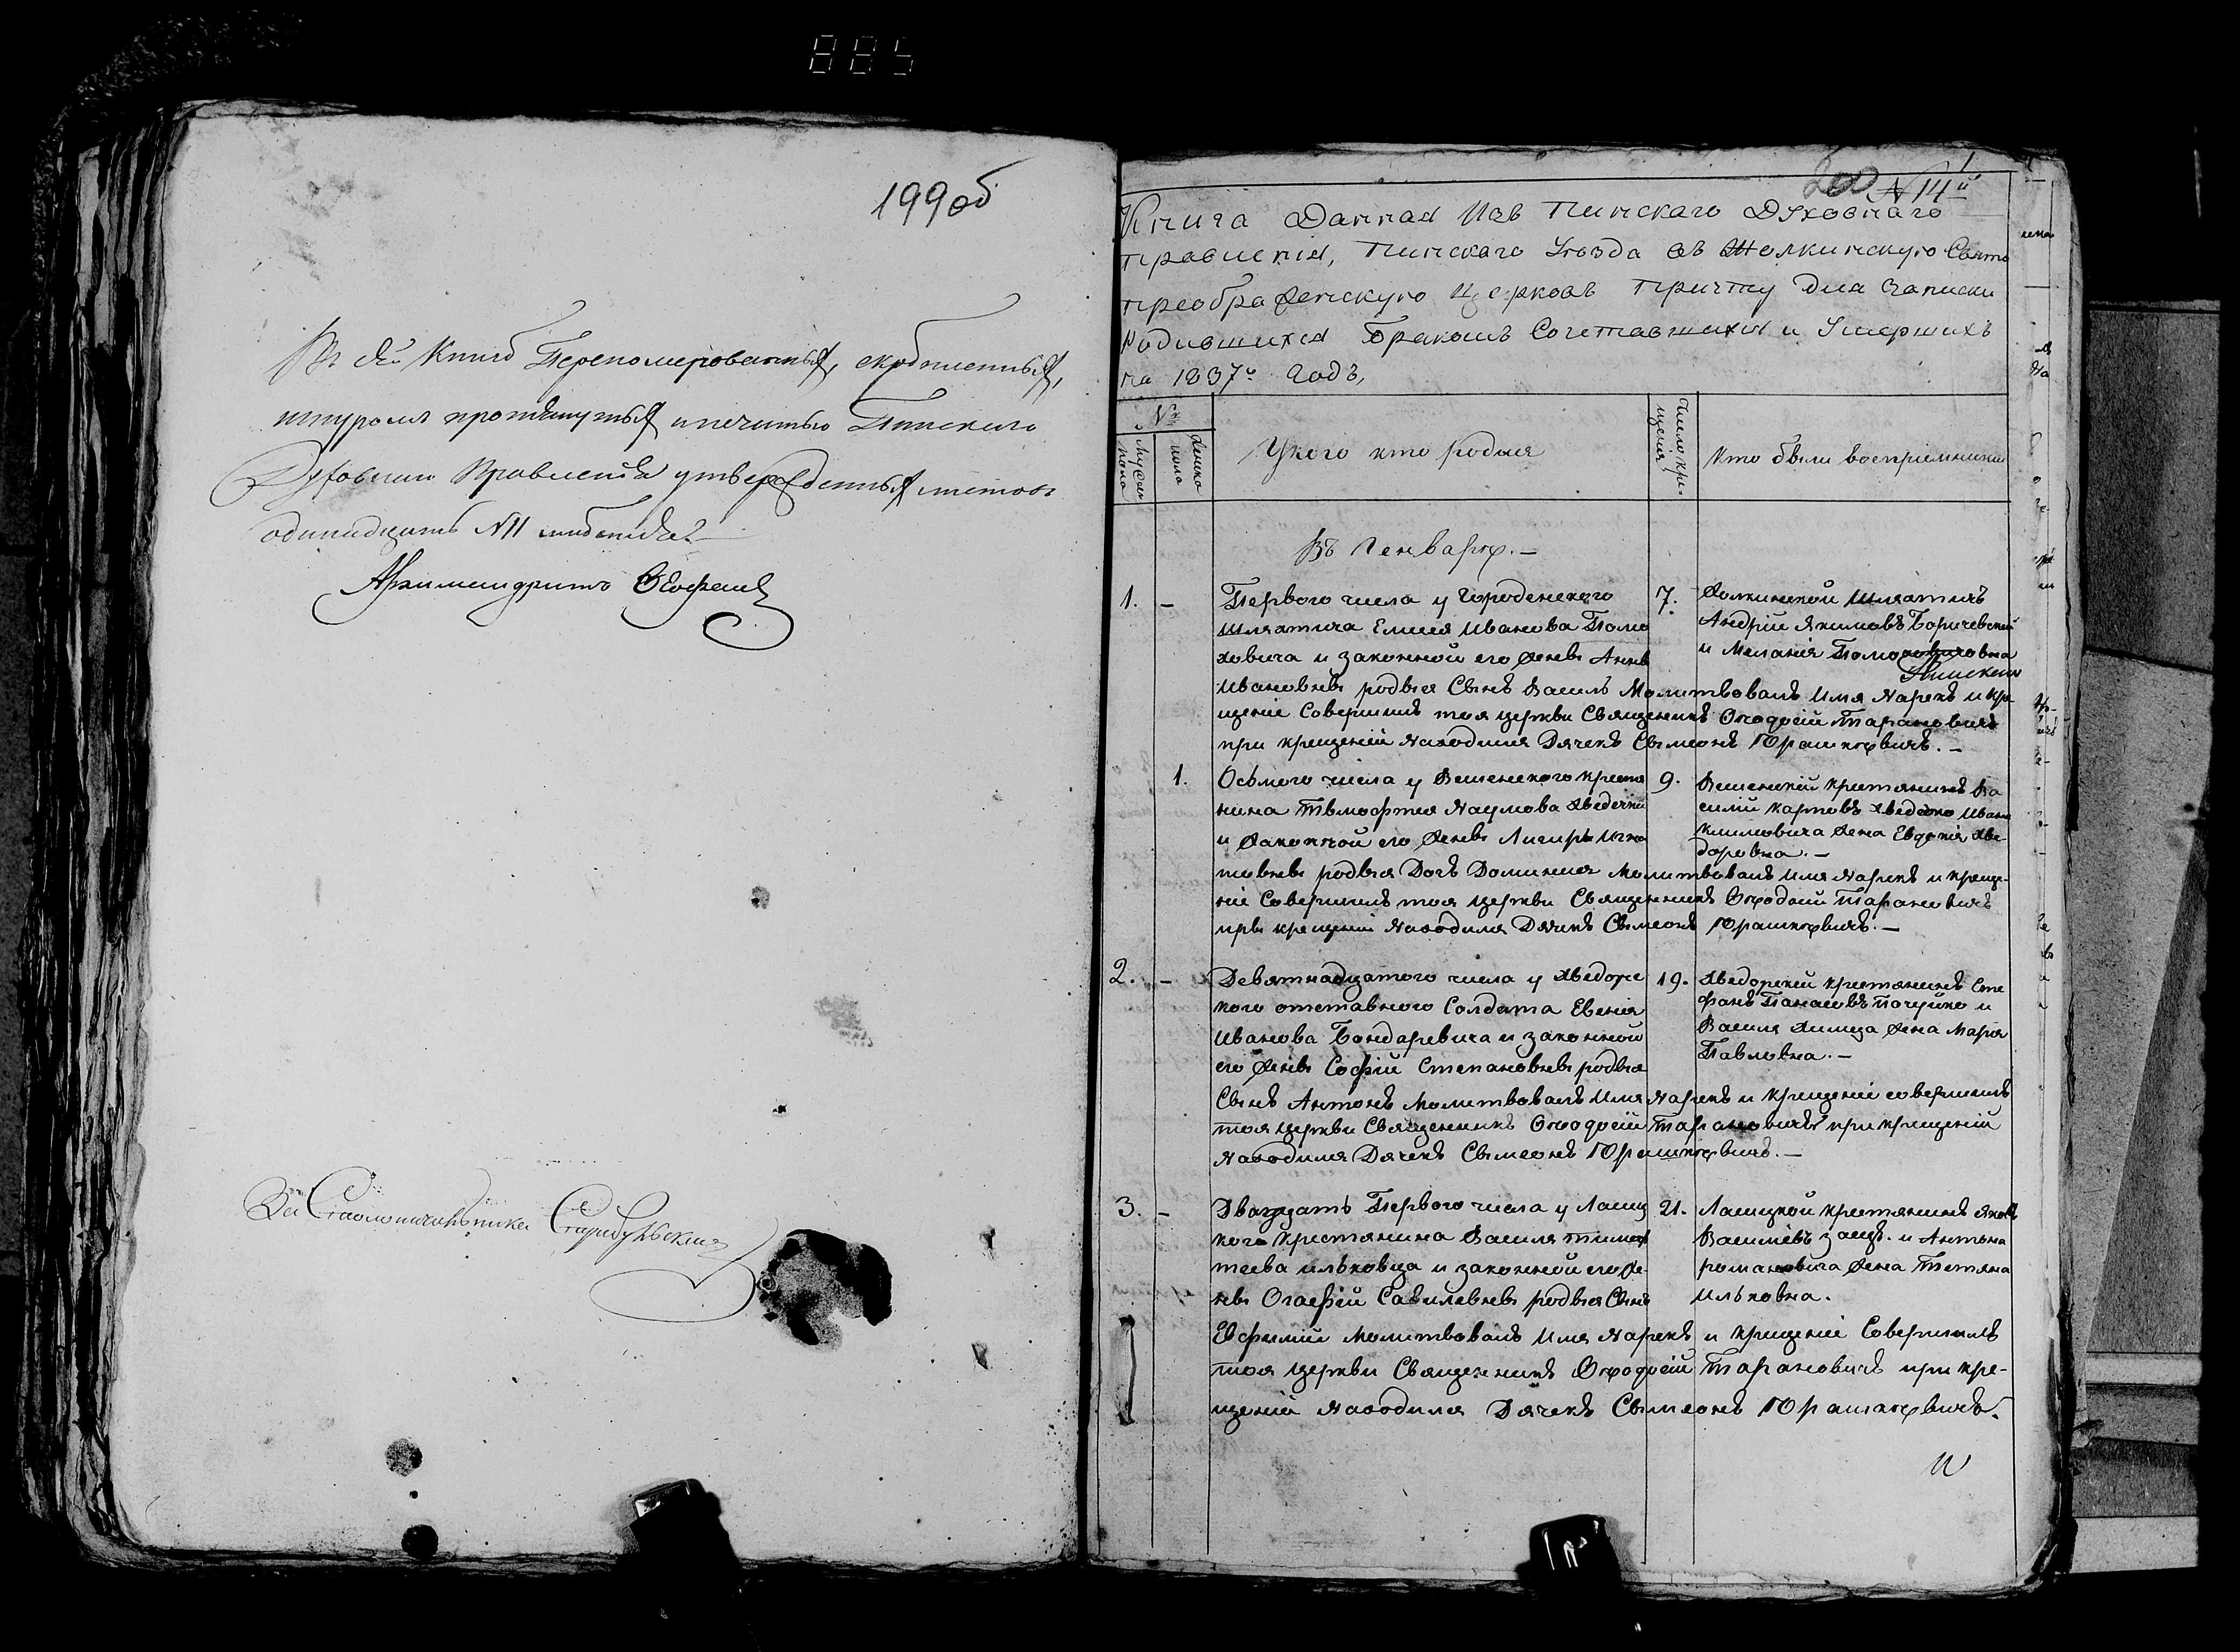 885
199об
Въ сей Книгѣ Переномерованныхъ, скрѣпленныхъ,
шнуромъ протянутыхъ и печатью Пинскаго
Духовнаго Правленія утвержденныхъ листовъ
одинадцать N 11 
Архимандритъ
За Столоначальника
200 N 14й
Книга Данная Изъ Пинскаго Духовнаго
Правленія, Пинскаго Уѣзда въ Жолкинскую Свято
преображенскую Церковь Причту для Записки
Родившихся Бракомъ Сочетавшихся и Умершихъ
на 1837й Годъ,
Nъ
Мужска пола
Женска пола
У кого кто родился
Число крещенія
Кто были воспріемники
Въ Генварѣ. —
1. — Первого числа у Городенского
шляхтича Емелея Иванова Поло
ховича и законной его женѣ Аннѣ
Ивановнѣ родыся Сынъ Василь Молитвовалъ Имя Нарекъ и кре
щеніе Совершилъ тоя церкви Священникъ Ѳеодосій Тарановичъ
при крещеніи Находился Дячекъ Сымеонъ Юрашкевичъ. —
7. Жолкинской Шляхтичъ
Андрій Якимовъ Боричевскій
и Меланія
1. Осьмого числа у Вешенского крестя
нина Тымофтея Наумова Хведечки
и Законной его Женѣ
родыся Дочь Доминия Молитвовалъ Имя Нарекъ и креще-
ніе Совершилъ тоя церкви Священникъ Ѳеодосій Тарановичъ
пры крещеніи Находился Дячекъ Сымеонъ Юрашкевичъ. —
9. Вешенскій крестянинъ Ва
силій Карповъ Хведечко Ивана
Климовича Жена Евдокія Хве-
доровна. —
2. — Девятнадцатого числа у Хведоре
кого отставного Солдата Евсия
Иванова Бондаревича и законной
его женѣ Софіи Степановнѣ родыся
Сынъ Антонъ Молитвовалъ Имя Нарекъ и крещеніе совершилъ
тоя церкви Священникъ Ѳеодосій Тарановичъ при крещеніи
Находился Дячекъ Сымеонъ Юрашкевичъ. —
19. Хведорскій крестянинъ Сте
фанъ Панасовъ Почуйко и
Василя Химца Жена Марія
Павловна. —
3. — Двадцать Первого числа у Лашиц
кого крестянина Василя Тимох
теева Ильковца и законной его же-
нѣ Огафіи Савилевнѣ родыся Сынъ
Евфимій Молитвовалъ Имя Нарекъ и крещеніе Совершилъ
тоя церкви Священникъ Ѳеодосій Тарановичъ при кре-
щеніи Находился Дячекъ Сымеонъ Юрашкевичъ.
21. Лашицкой крестянинъ Яковъ
Василіевъ и Антона
романовича Жена Тетяна
Ильковна.